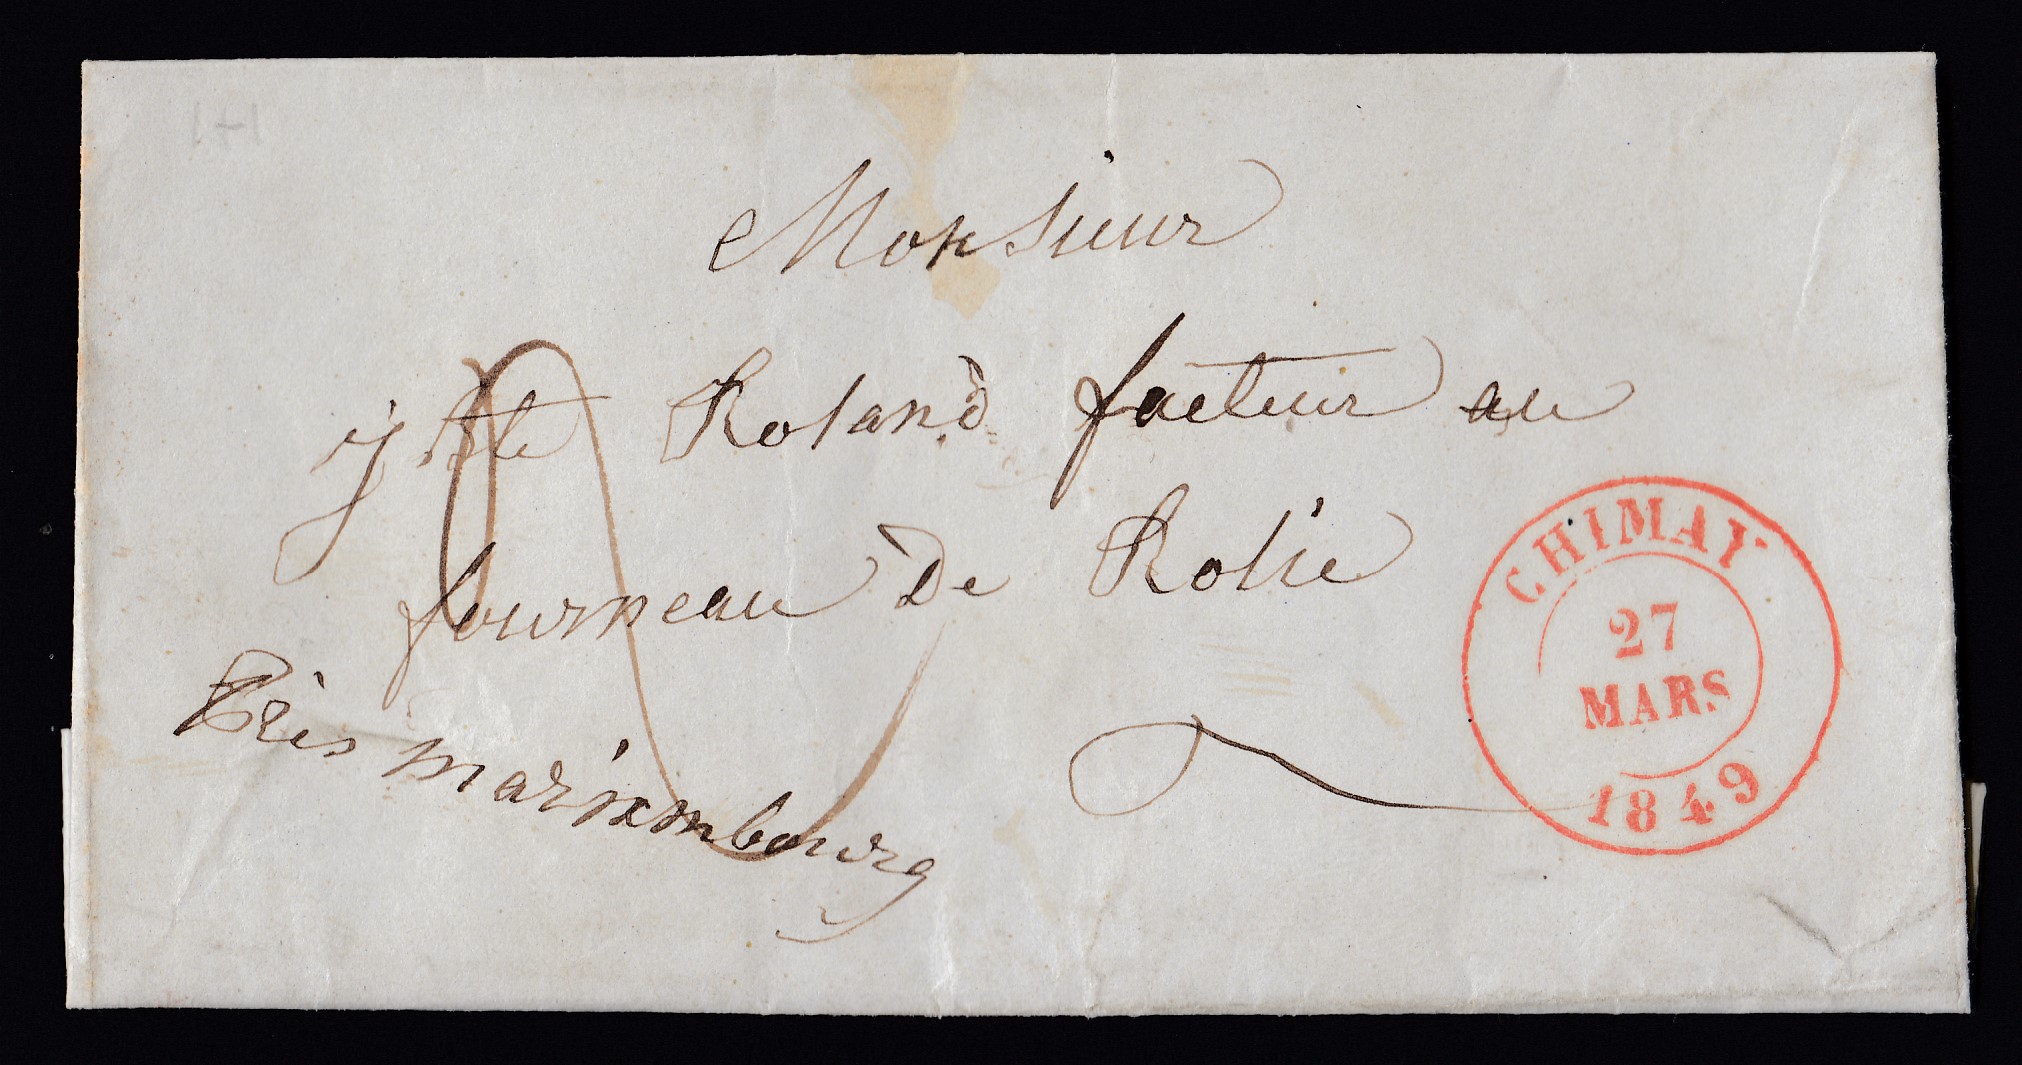 Monsieur
j Bte Roland facteur au
fourneau de Rolie
Près mariembourg
CHIMAY
27
MARS
1849